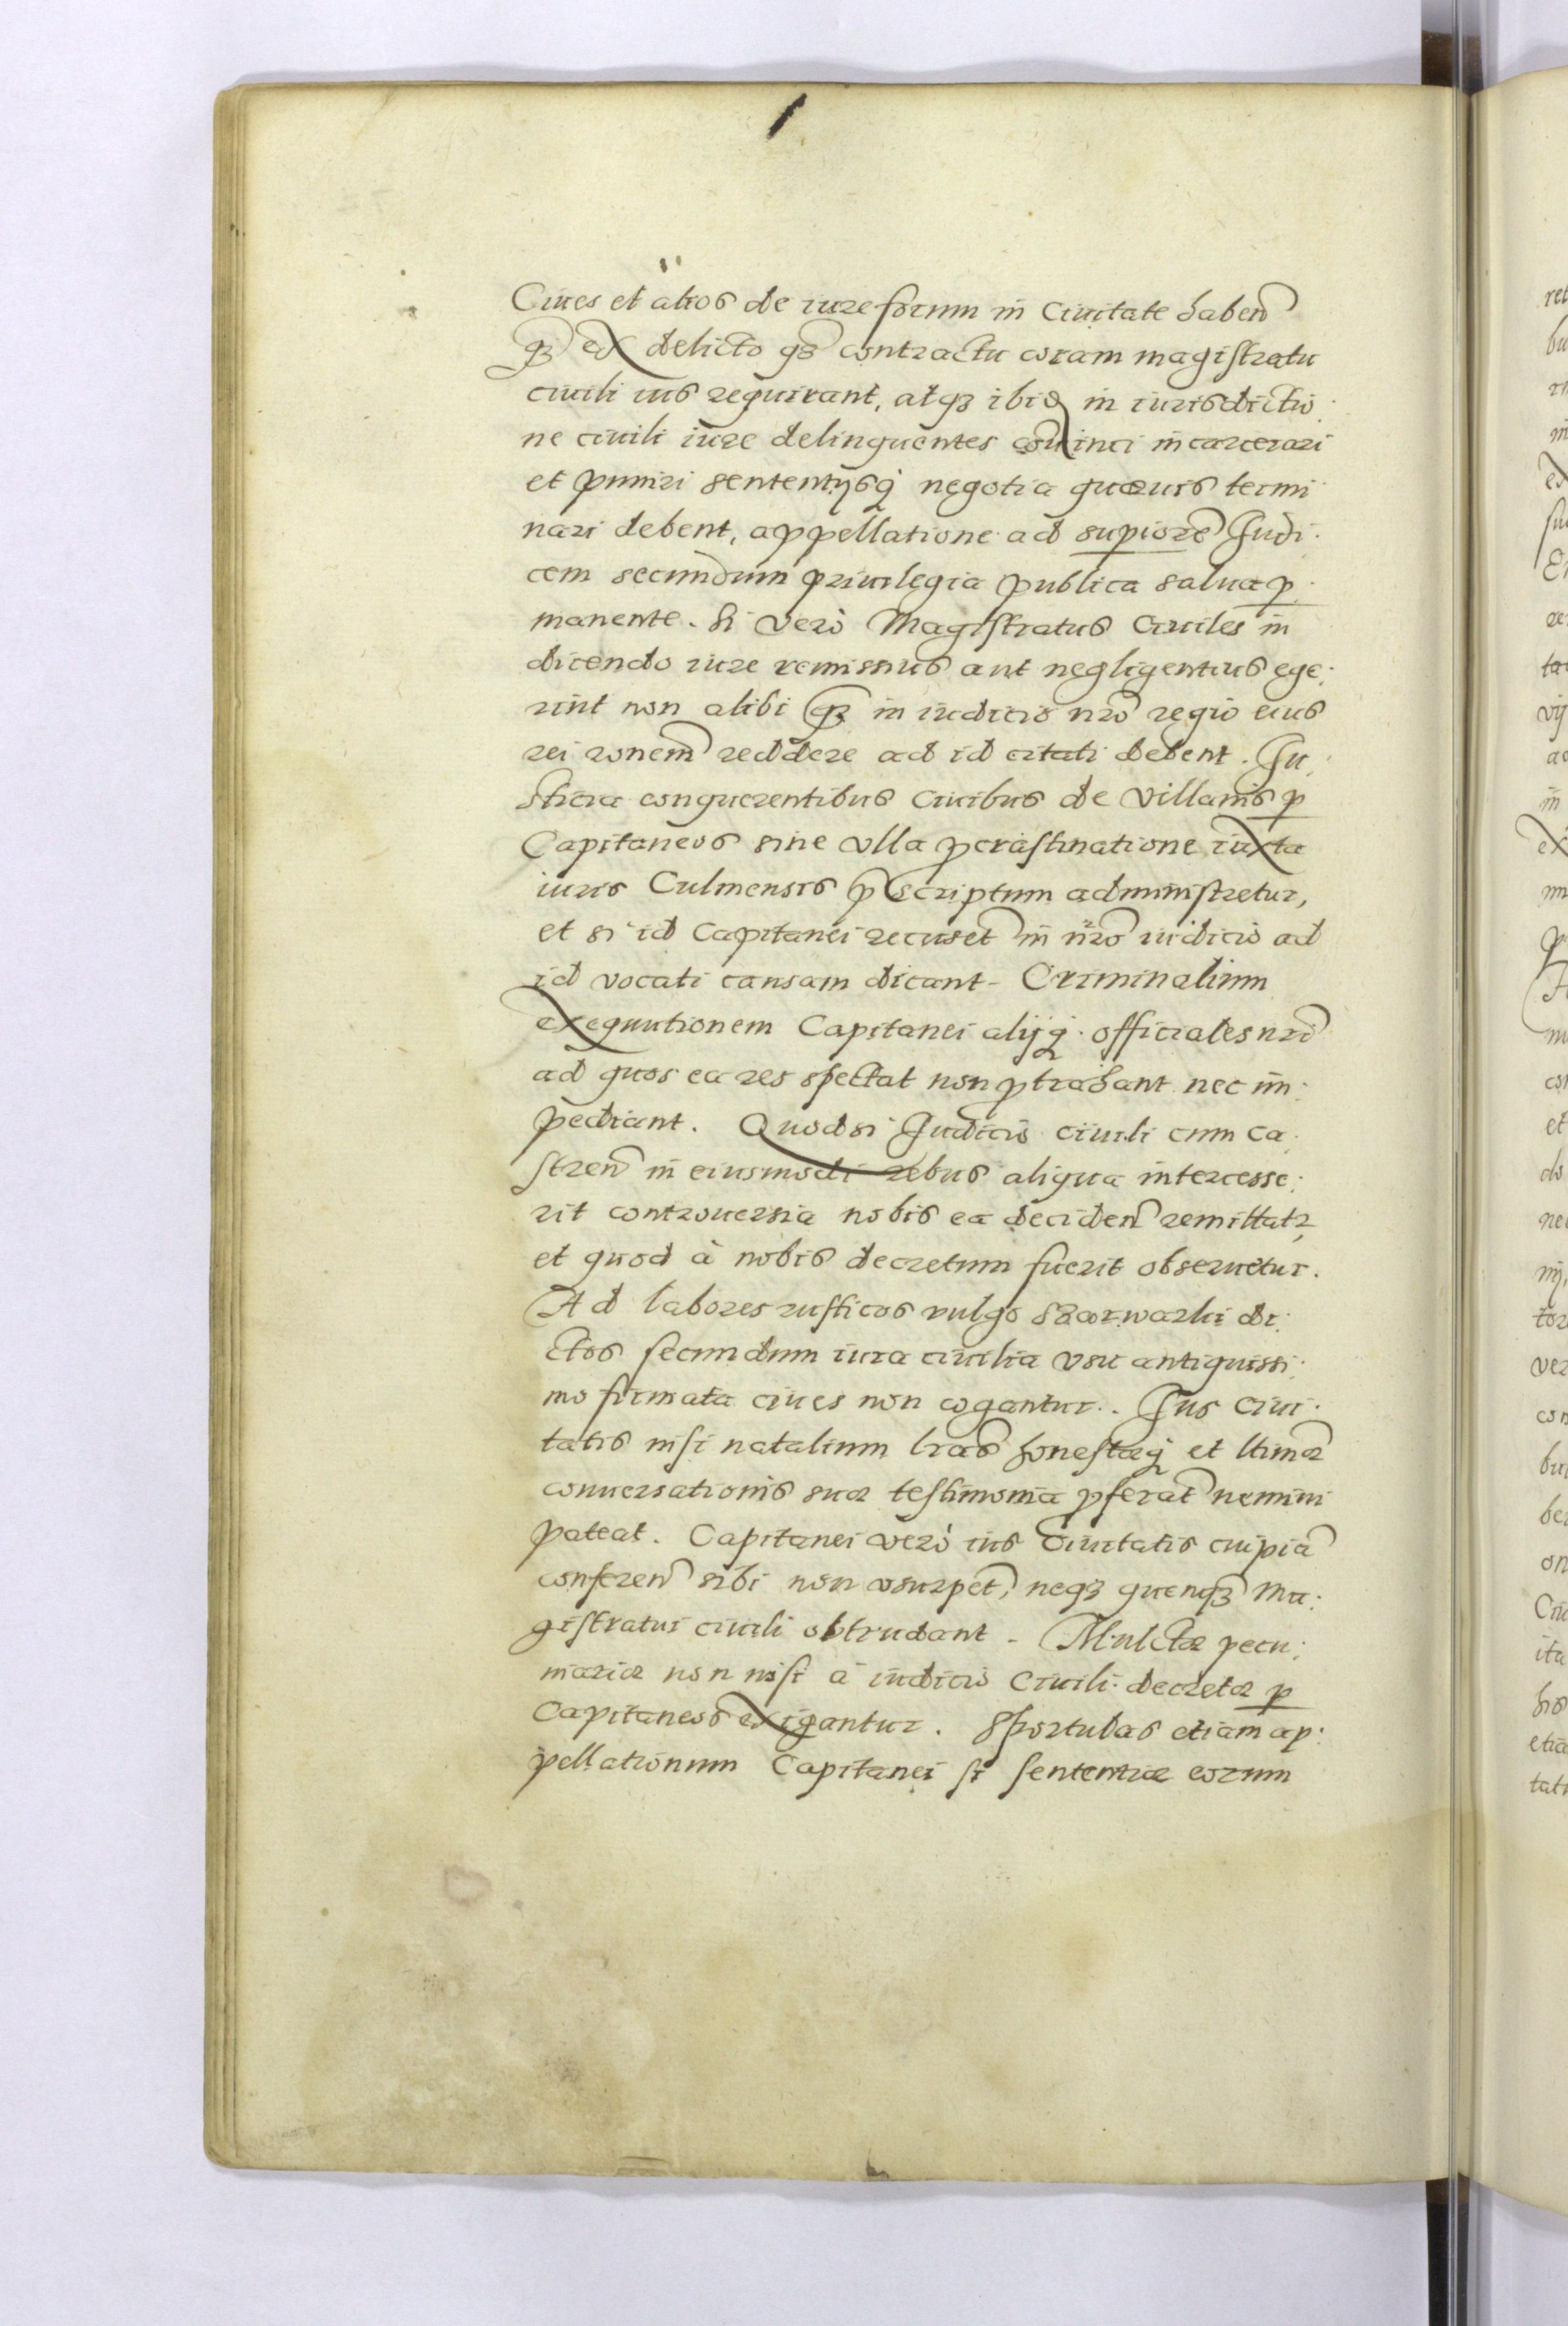 Ciues et alios de iure forum in Ciuitate haben̄
qꝫ ex delicto qꝫ contractu coram magistratu
ciuili ius requirant, atqꝫ ibid̄ in iurisdictio
ne ciuili iure delinquentes conuinci incarcerari
et puniri sententijsq̢ negotia quæuis termi
nari debent, appellatione ad sup̲iorē Judi:
cem secundum priuilegia publica salua p̲
manente. Si verò Magistratus Ciuiles in
dicendo iure remissius aut negligentius ege:
rint non alibi qꝫ in iudicio nr̄o regio eius
rei rōnem reddere ad id citati debent. Ju:
sticia conquerentibus ciuibus de villanis p̲
Capitaneos sine vlla ꝓcrastinatione iuxta
iuris Culmensis p̄scriptum administretur,
et si id Capitanei recuset̄ in nr̄o iudicio ad
id vocati causam dicant. Criminalium
exequutionem Capitanei alijq̢ officiales nr̄i
ad quos ea res spectat non ꝓtrahant nec im:
pediant. Quodsi Judicio ciuili cum ca:
stren̄ in eiusmodi rebus aliqua intercesse:
rit controuersia nobis ea deciden̄ remittatr̃,
et quod à nobis decretum fuerit obseruetur.
Ad labores rusticos vulgo szarwarki di:
ctos secundum iura ciuilia vsu antiquissi:
mo firmata ciues non cogantur. Jus Ciui:
tatis nisi natalium lr̄as honestæq̢ et ltimæ
conuersationis suæ testimonia ꝓferat nemini
pateat. Capitanei verò ius Ciuitatis cuipiā
conferen̄ sibi non vsurpet̄, neqꝫ quenqꝫ Ma:
gistratui ciuili obtrudant. Mulctæ pecu:
niariæ non nisi à iudicio Ciuili decretæ p̲
Capitaneos exigantur. Sportulas etiam ap:
pellationum Capitanei si sententiæ eorum